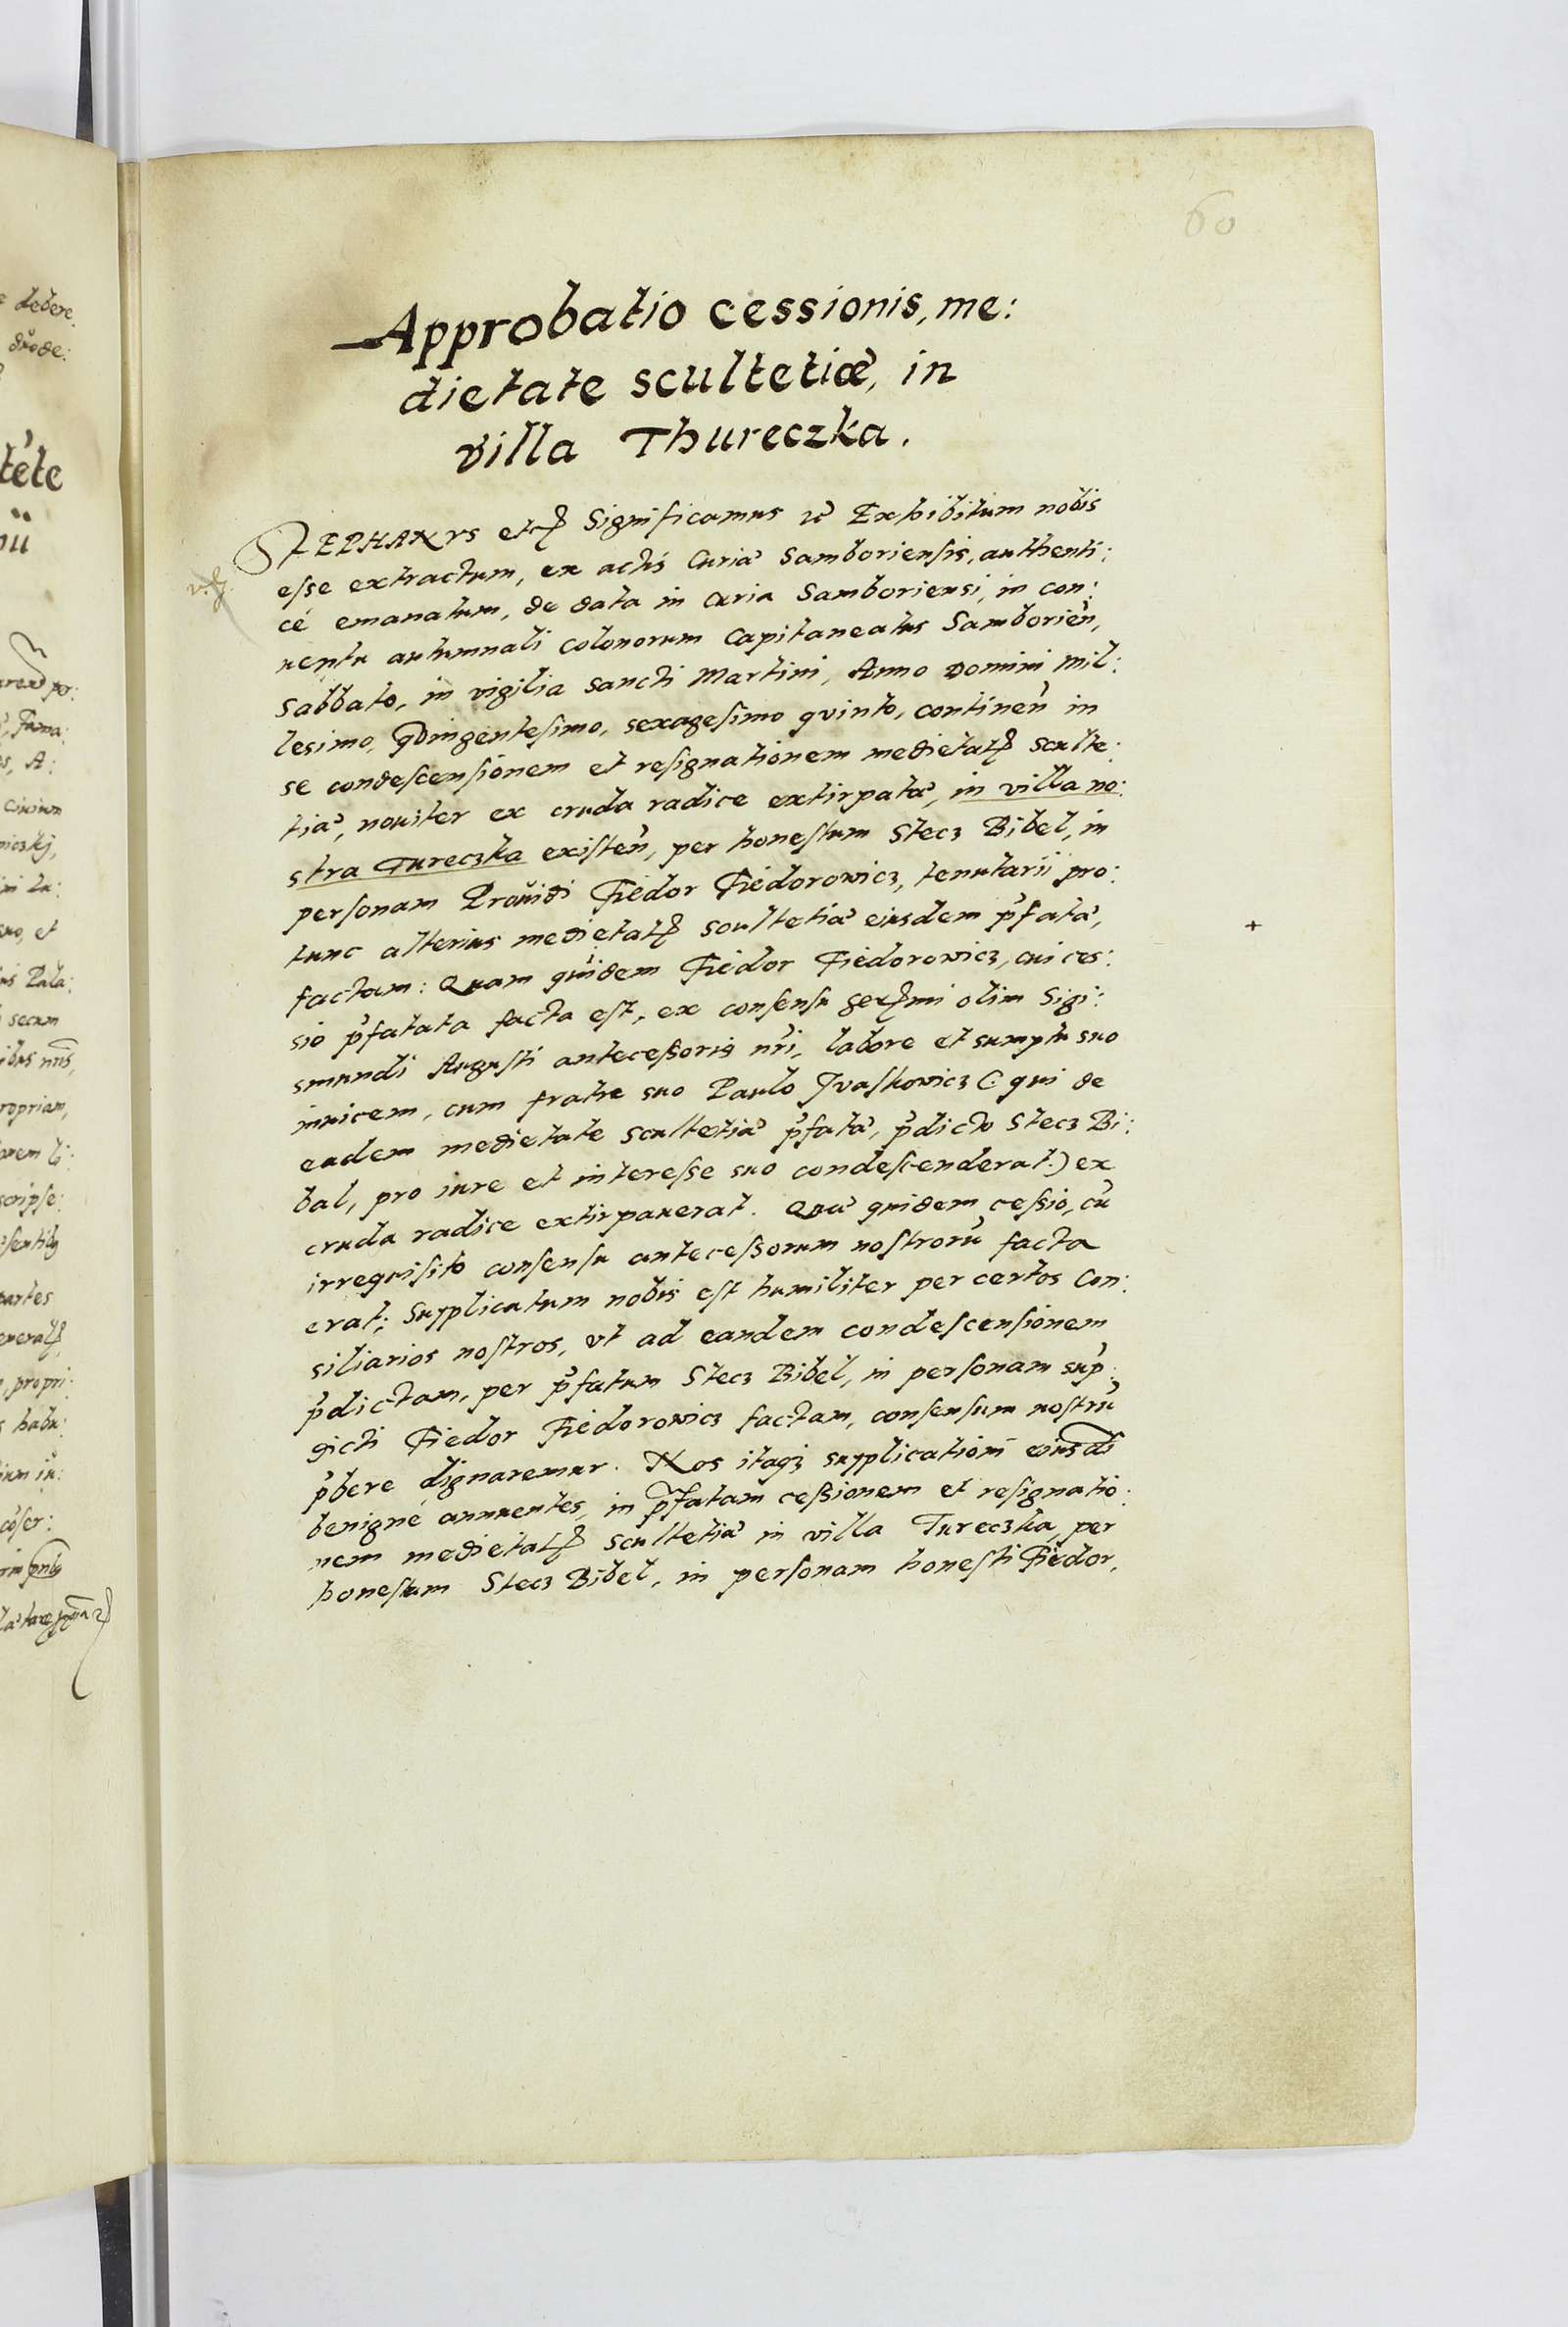 60
Approbatio cessionis, me:
dietate scultetiæ, in
villa Thureczka.
STEPHANVS etc Significamus &c Exhibitum nobis
esse extractum, ex actis Curiæ Samboriensis, authenti:
cé emanatum, de data in Curia Samboriensi, in con:
uentu autumnali colonorum Capitaneatus Samborien̄,
Sabbato, in vigilia sancti Martini, Anno Domini Mil:
lesimo, qvingentesimo, sexagesimo qvinto, continen̄ in
se condescensionem et resignationem medietatꝭ Sculte:
tiæ, nouiter ex cruda radice extirpatæ, in villa no:
stra Tureczka existen̄, per honestum Stecz Bibel, in
personam Prouidi Fiedor Fiedorowicz, tenutarii pro:
tunc alterius medietatꝭ scultetiæ eiusdem p̄fatæ,
factam: Quam quidem Fiedor Fiedorowicz, cui ces:
sio p̄fatata facta est, ex consensu serꝭmi olim Sigi:
smundi Augusti antecessoris nr̄i, labore et sumptu suo
inuicem, cum fratre suo Paulo Jvaskowicz (: qui de
eadem medietate scultetiæ p̄fatæ, p̄dicto Stecz Bi:
bal, pro iure et interesse suo condescenderat:) ex
cruda radice extirpauerat. Quæ quidem cessio, cū
irrequisito consensu antecessorum nostrorū facta
erat; Supplicatum nobis est humiliter per certos Con:
siliarios nostros, vt ad eandem condescensionem
p̄dictam, per p̄fatum Stecz Bibel, in personam sup̄:
dicti Fiedor Fiedorowicz factam, consensum nostrū
p̄bere dignaremur. Nos itaqꝫ supplicationi eiusdi
benigné annuentes, in p̄fatam cessionem et resignatio:
nem medietatꝭ scultetiæ in villa Tureczka, per
honestum Stecz Bibel, in personam honesti Fiedor,
debere.
téte
cinium
et
secum
ropriam,
scripse:
partes
propri:
habu: